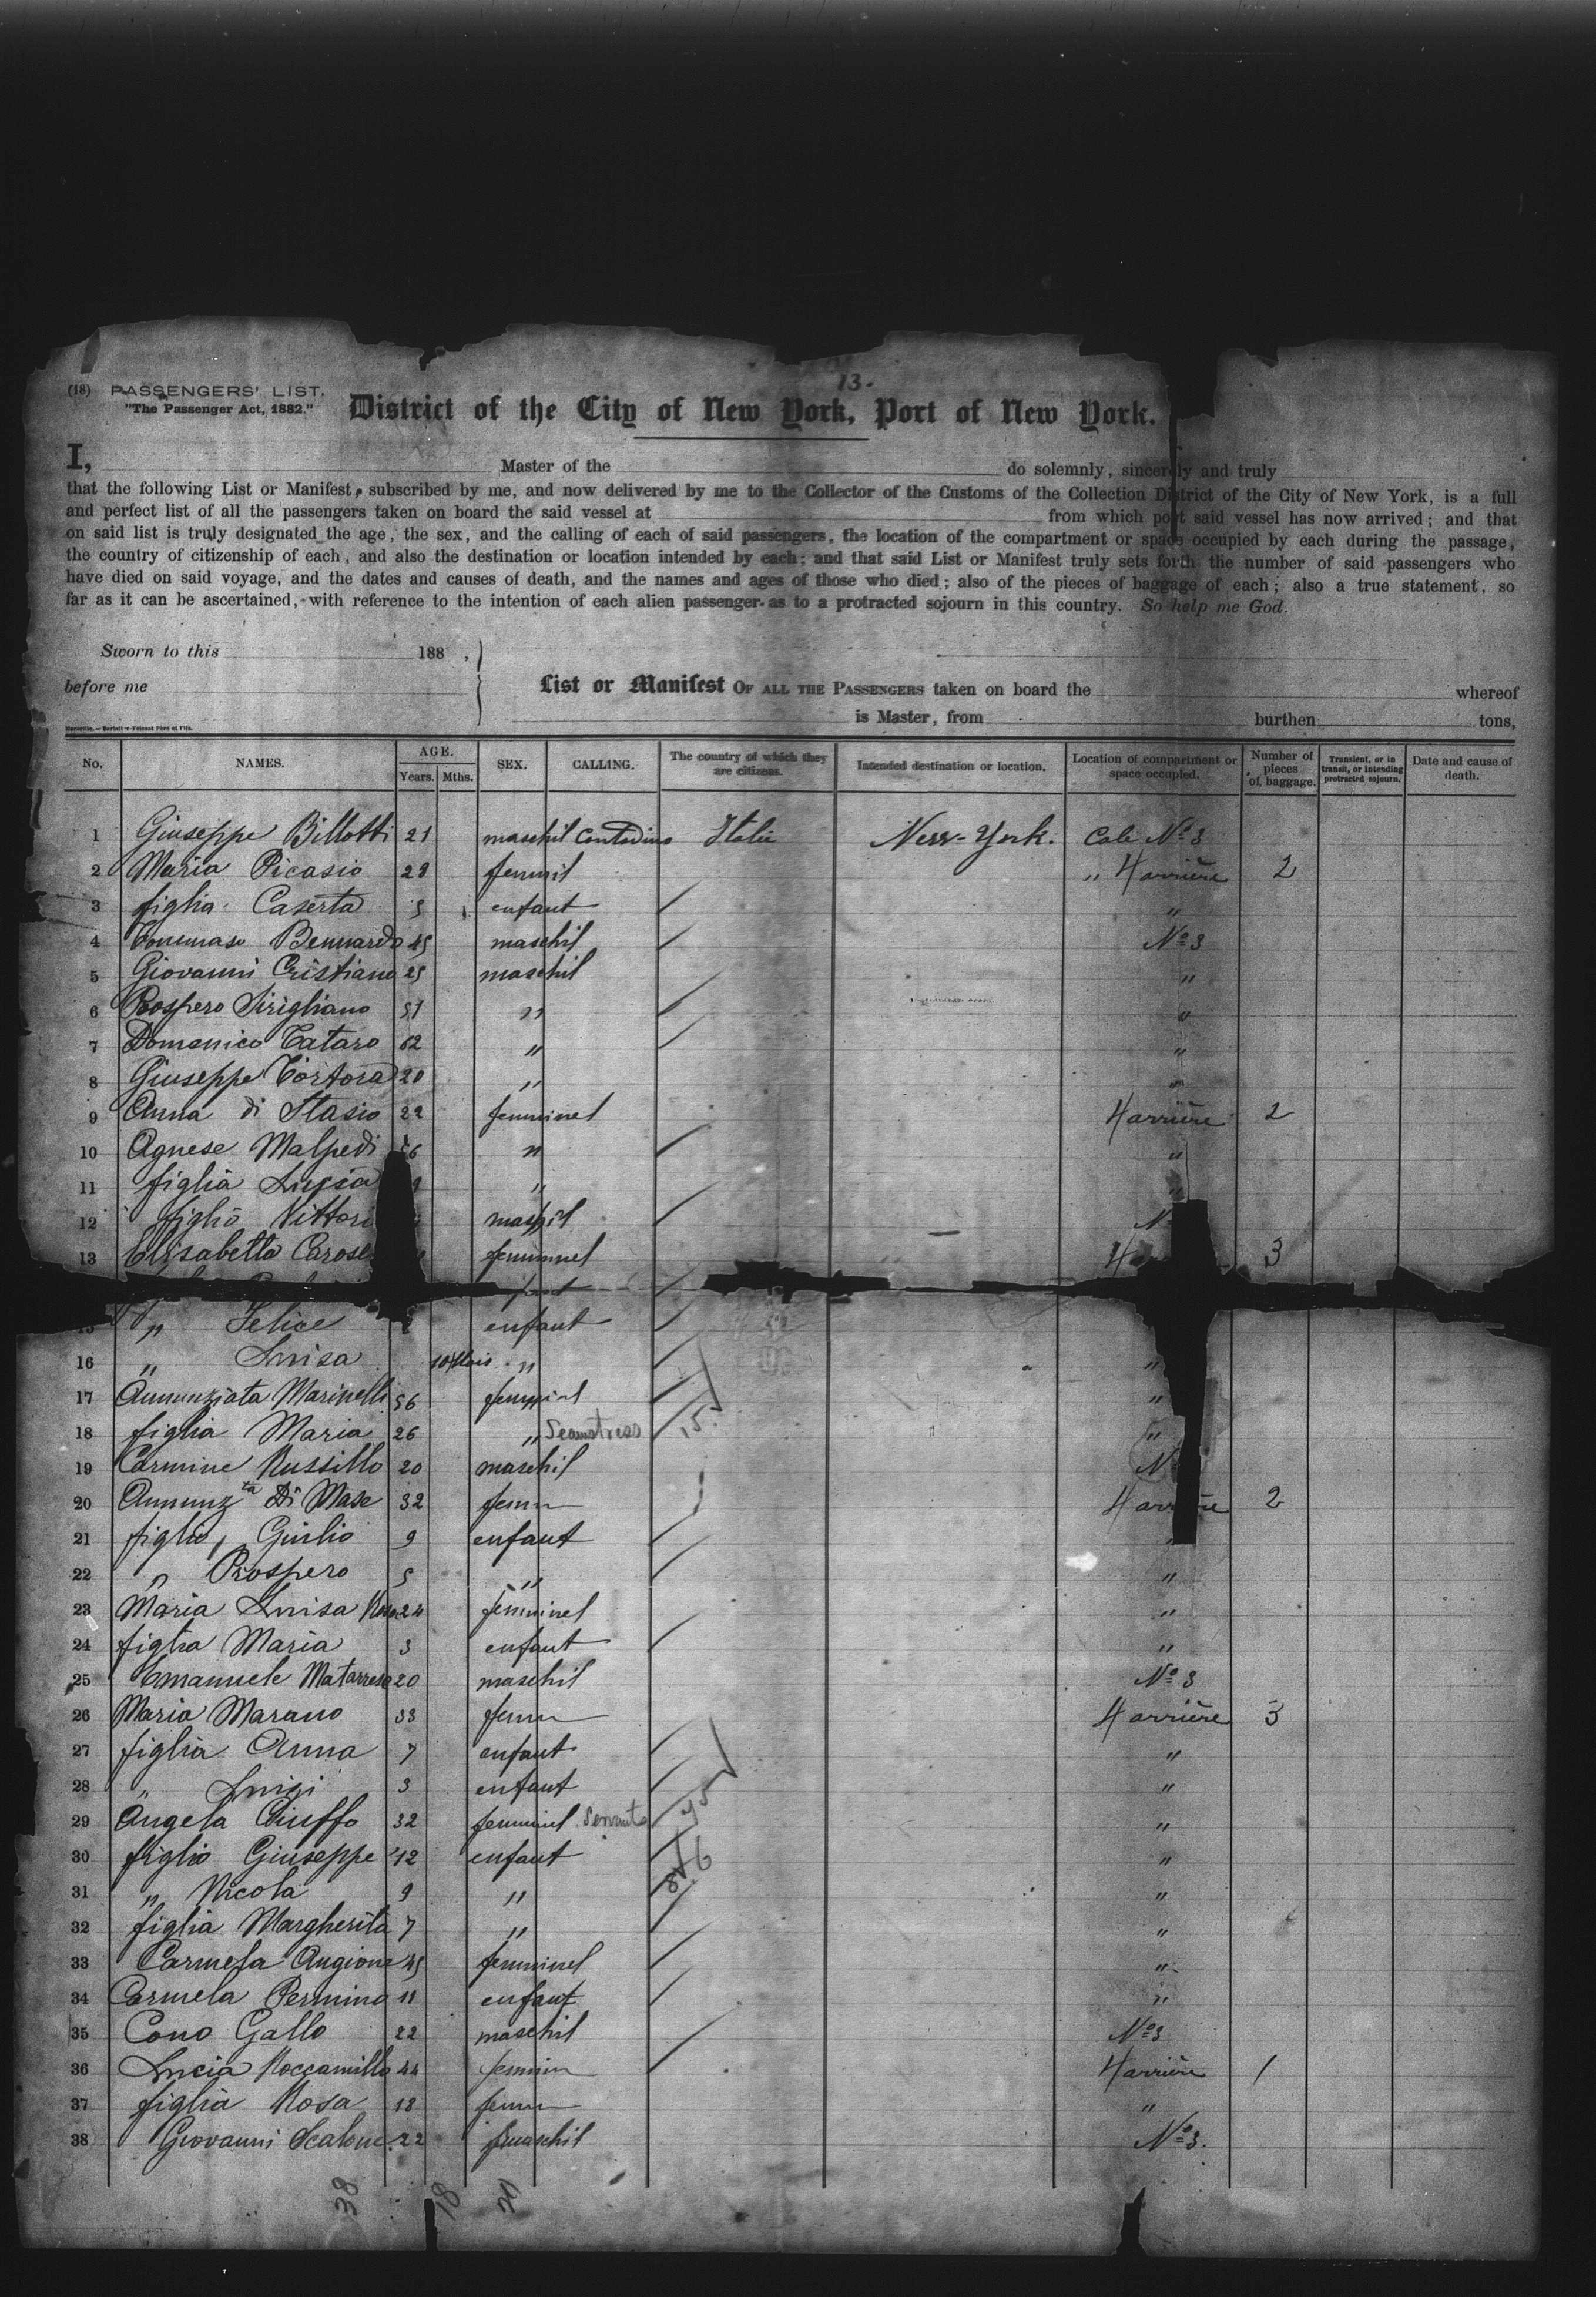 13.
(18) PASSENGERS' LIST.
"The Passenger Act, 1882."
District of the City of New York, Port of New York.
I, Master of the do solemnly, sincerely and truly
that the following List or Manifest, subscribed by me, and now delivered by me to the Collector of the Customs of the Collection District of the City of New York, is a full
and perfect list of all the passengers taken on board the said vessel at from which port said vessel has now arrived; and that
on said list is truly designated the age, the sex, and the calling of each of said passengers, the location of the compartment or space occupied by each during the passage,
the country of citizenship of each, and also the destination or location intended by each; and that said List or Manifest truly sets forth the number of said passengers who
have died on said voyage, and the dates and causes of death, and the names and ages of those who died; also of the pieces of baggage of each; also a true statement, so
far as it can be ascertained, with reference to the intention of each alien passenger as to a protracted sojourn in this country. So help me God.
Sworn to this 188 ,
before me
List or Manifest OF ALL THE PASSENGERS taken on board the whereof
is Master, from burthen tons,
No. NAMES. AGE. Years. Mths. SEX. CALLING. The country of which they are citizens. Intended destination or location. Location of compartment or space occupied. Number of pieces of baggage. Transient, or in transit, or intending protracted sojourn. Date and cause of death.
1 Giuseppe Billotti 21 maschil Contadino Italie New-York. Cale No 3
2 Maria Picasio 28 feminil " 4 arrière 2
3 figlia Caserta 5 enfant "
4 Tommaso Bennardo 45 maschil No 3
5 Giovanni Cristiano 25 maschil "
6 Prospero Sirigliano 51 " "
7 Domenico Cataro 62 " "
8 Giuseppe Tortora 20 " "
9 Anna di Stasio 22 femminel 4 arrière 2
10 Agnese Malpedi 6 " "
11 figlia Luisa "
12 figlio Vittori maschil
13 Elisabetta Carose femminel 3
15 " Felice enfant
16 " Luisa 10 Mois " "
17 Annunziata Marinelli 56 "
18 figlia Maria 26 " Seamstress "
19 Carmine Russillo 20 maschil N
20 Annunzta Di Mase 32 femm 4 arrière 2
21 figlio, Giulio 9 enfant "
22 " Prospero 5 " "
23 Maria Luisa 24 femminel "
24 figlia Maria 3 enfant "
25 Emanuele Matarrese 20 maschil No 3
26 Maria Marano 33 femm 4 arrière 3
27 figlia Anna 7 enfant "
28 " Luigi 3 enfant "
29 Angela Ciuffo 32 femminel Servant "
30 figlio Giuseppe 12 enfant "
31 " Nicola 9 " "
32 figlia Margherita 7 " "
33 Carmela Angione 45 femminel "
34 Carmela Permina 11 enfant "
35 Cono Gallo 22 maschil No 3
36 Lucia Roccamillo 44 femmin 4 arrière 1
37 figlia Rosa 18 femm "
38 Giovanni Scalone 22 maschil No 3.
38 18